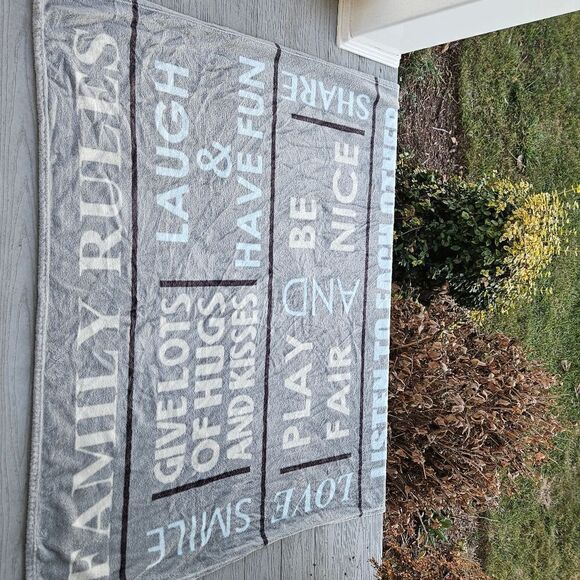 FAMILY RULES
GIVE LOTS
OF HUGS
AND KISSES
LAUGH
&
HAVE FUN
SMILE
LOVE
PLAY
FAIR
AND
BE
NICE
SHARE
LISTEN TO EACH OTHER